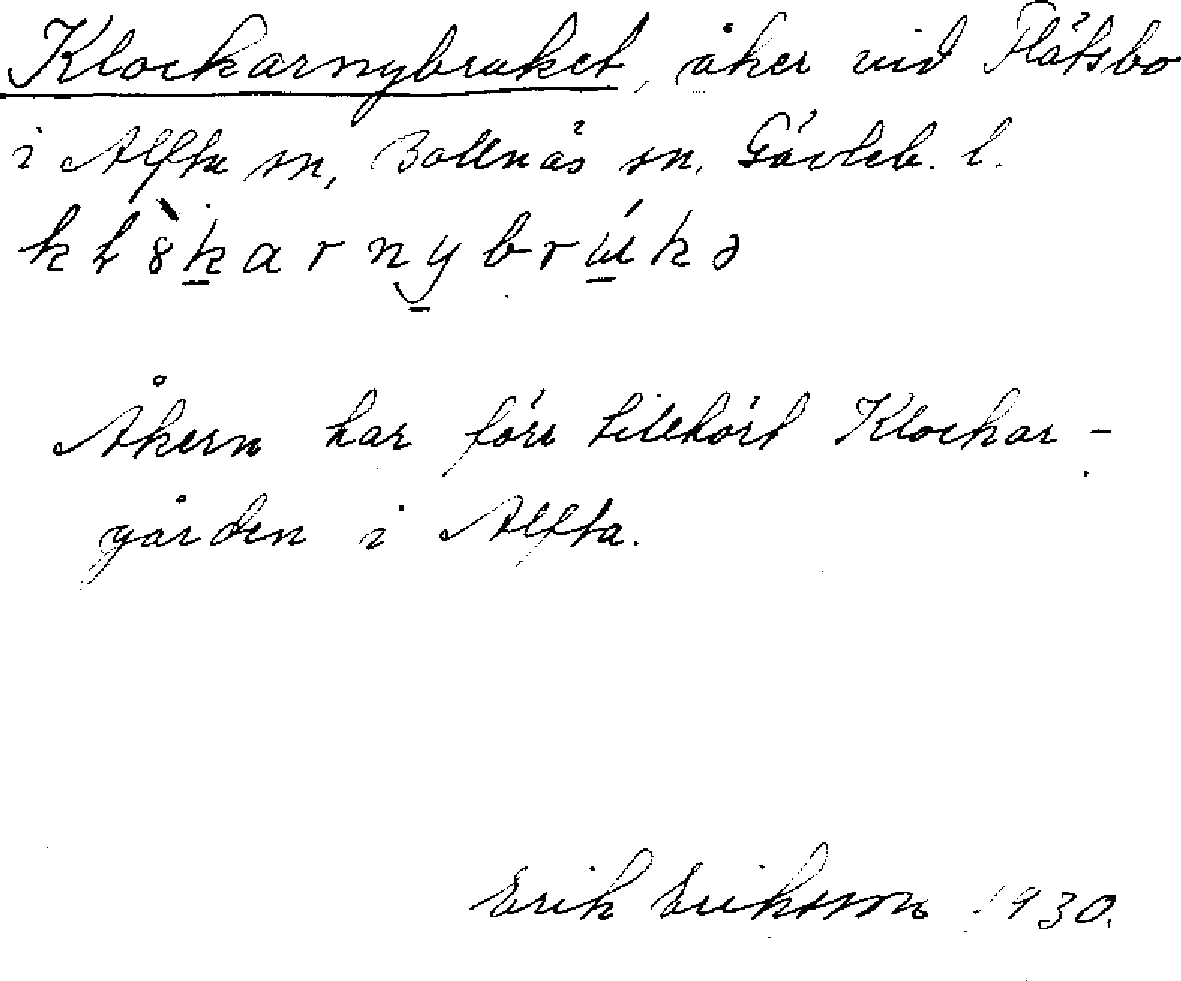 Klockarnybruket, åker vid Flätsbo
i Alfta sn, Bollnäs sn. Gävleb. l.
kł8̀k̲arnybrúkə
Åkern har förr tillhört Klockar-
gården i Alfta.
Erik Eriksson 1930.